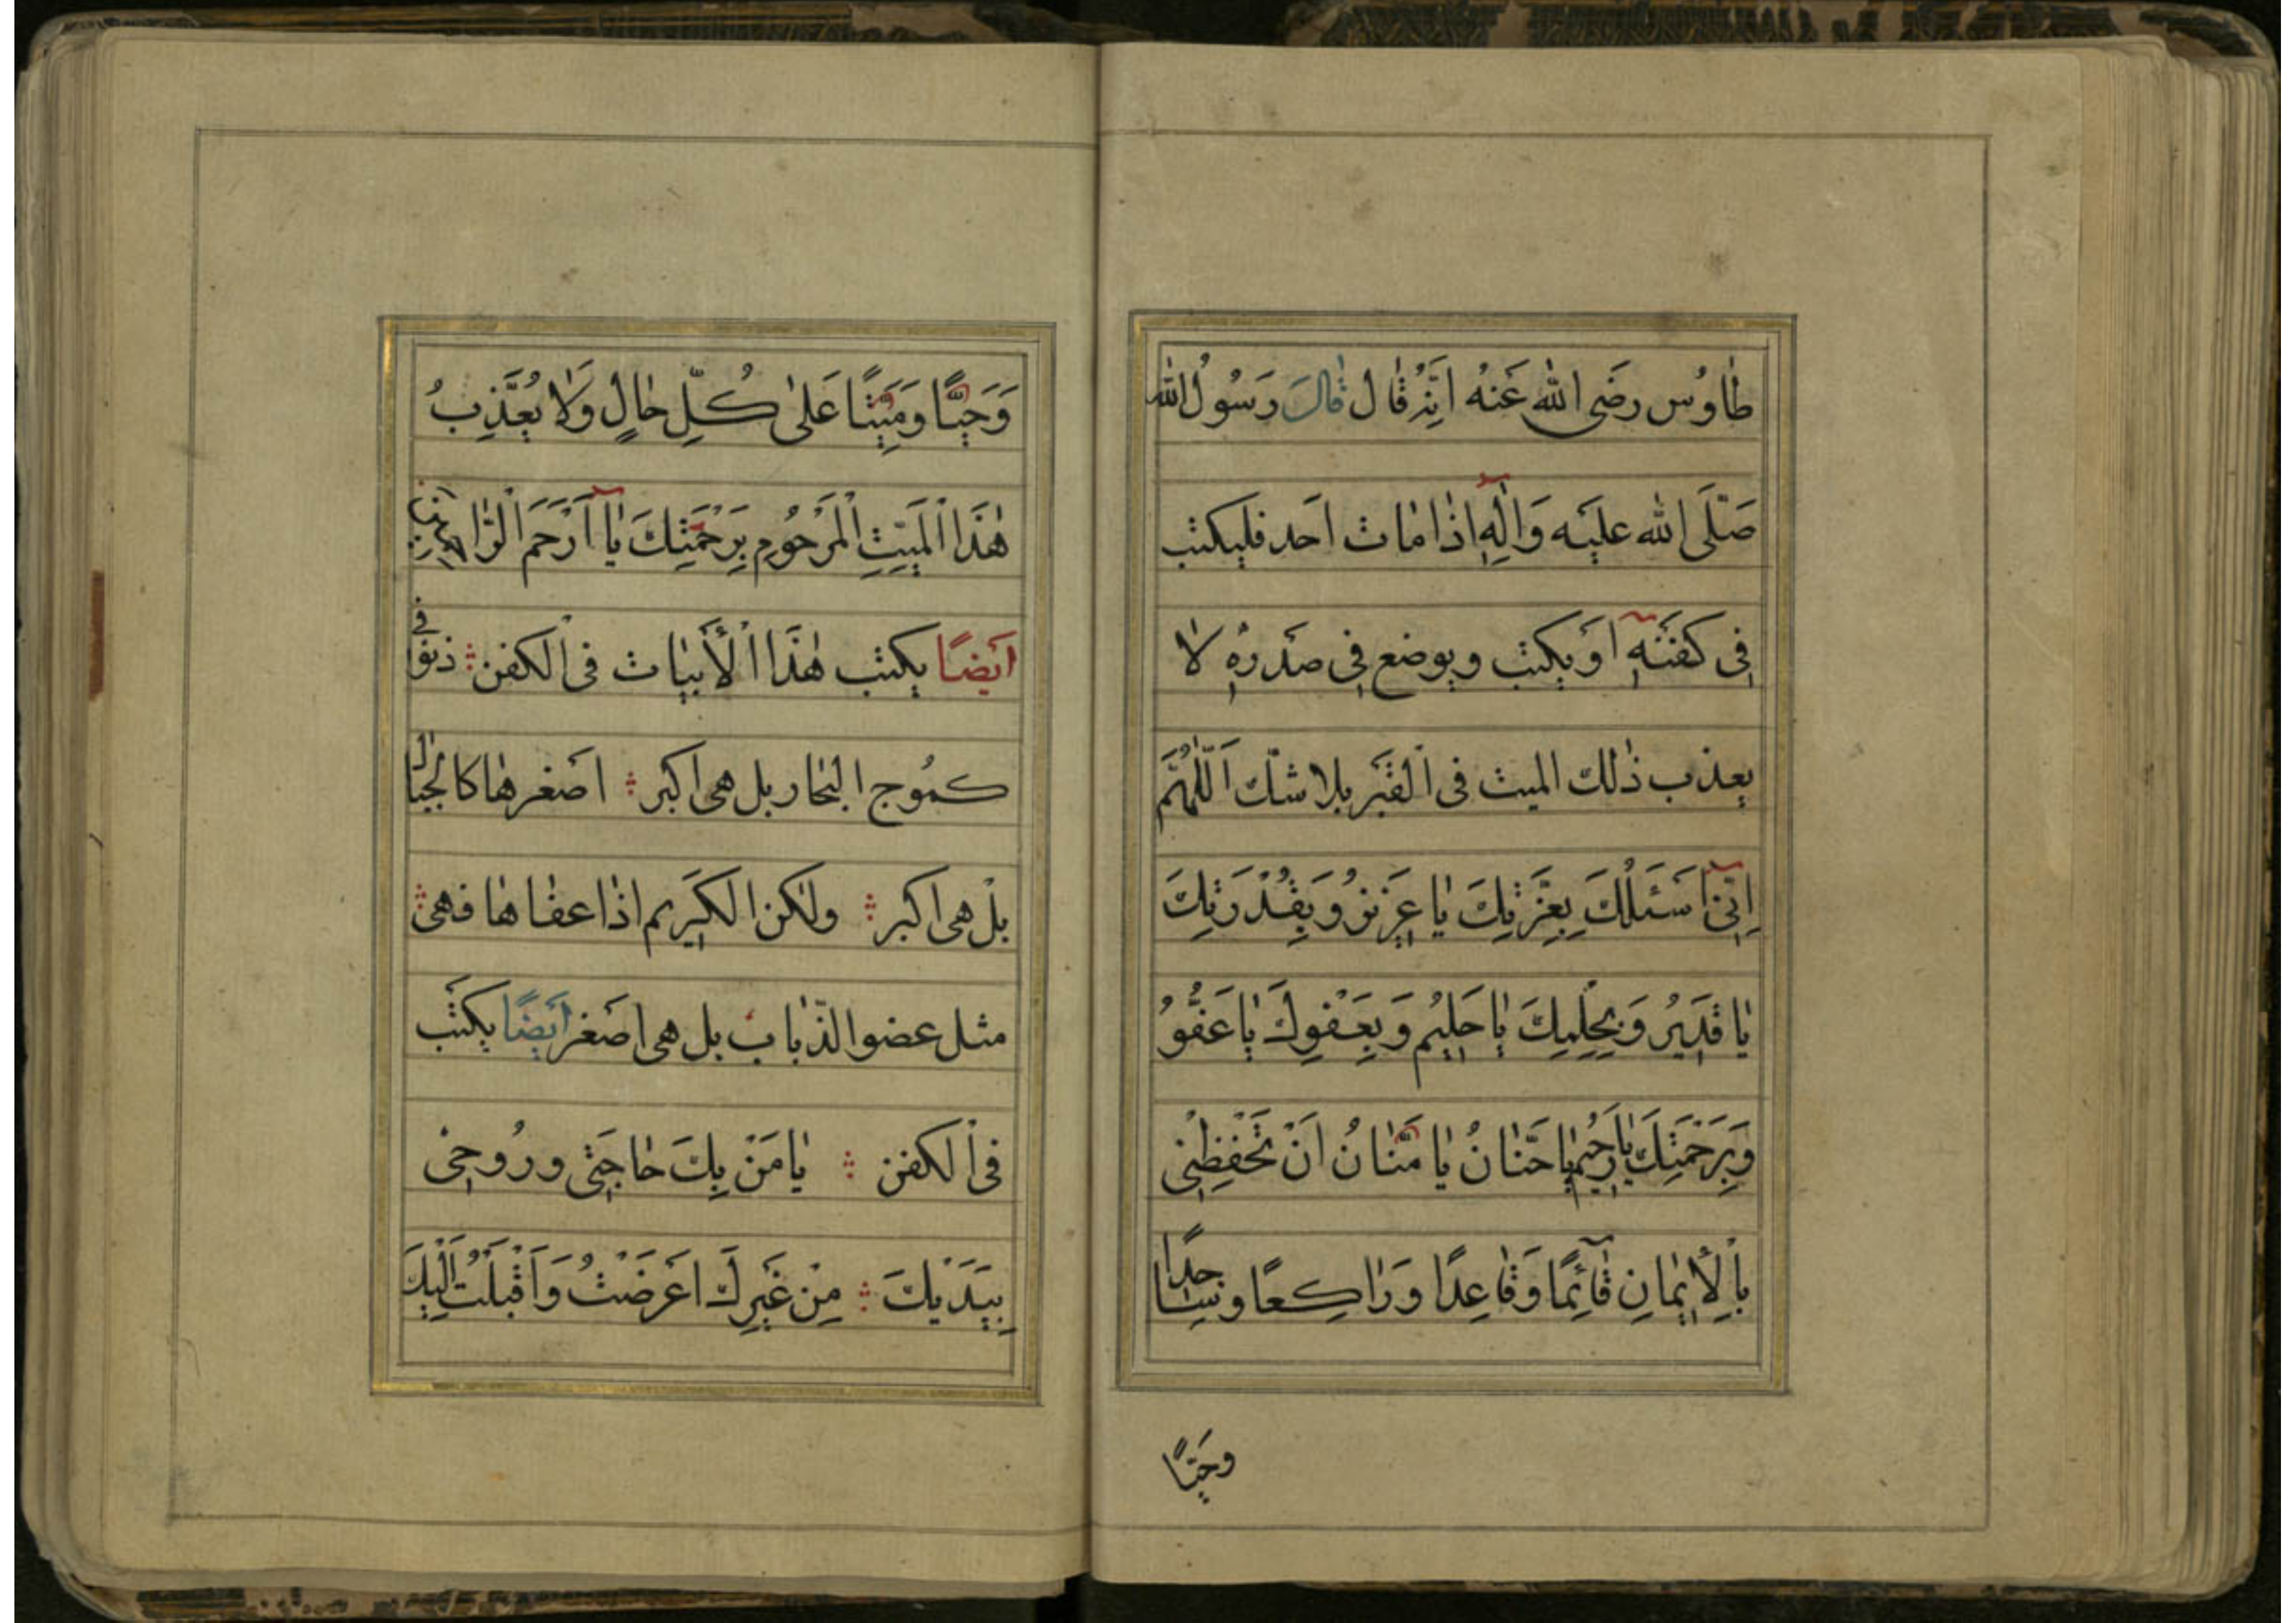 طٰاوُس رضَى الله عَنهُ انَّهُ قٰال قٰالَ رَسُولُ الله
صَلَّى الله عليَه وَاٰلِهٖ اذٰا مٰات احَد فليكتب
فِى كفَنهِٖ اوَ يكتب ويوضع فِى صَدرهِٖ لا
يعذب ذٰلك الميت فى القَبَر بلا شكّ اَللّٰهُمَّ
اِنّى اَسَئلُكَ بِعِزَّتِكَ يٰا عَزِيزُ وَبِقُدْرَتِكَ
يٰا قَدِيرُ وَبِحِلِمِكَ يٰا حَلِيُم وَبِعَفوِكَ يٰا عَفُّوُ
وَبِرَحْمَتِكَ يٰا رَحُيم يٰا حَنّٰانُ يٰا مَنّٰانُ اَنْ تَحْفِظنِى
بِاْلِأيٖمٰانِ قٰآئِمًا وَقٰاعِدًا وَرٰاكِعًا وسٰاجِدًا
وحَيًّا
وَحَيًّا وَمَيِّتًا عَلىٰ كُلِّ حٰالٍ وَلٰا يُعَّذِبُ
هٰذَا اْلَمَيِّتِ اْلمَرْحُومِ بِرَحْمَتِكَ يٰا اَرْحَمَ الرّٰاحمِينَ
ايَضًا يكتب هٰذَا اْلأَبيٰات فى اْلكفن ذنوٖفى
كمُوج البٰحار بل هى اكبر اصَغرهٰا كالجٰبٰال
بلْ هى اكبر ولٰكن الكَرِيم اذٰا عفٰاهٰا فهى
مثل عضو الذّبٰاب بل هى اصَغر ايَضًا يكتَب
فى اْلكفن يٰا مَنْ بِكَ حٰاجَتٖى ورُوحٖى
بِيَدَيْكَ مِنْ غَيرِكَ اعَرَضْتُ وَاَقْبَلْتُ اِلَيْكَ